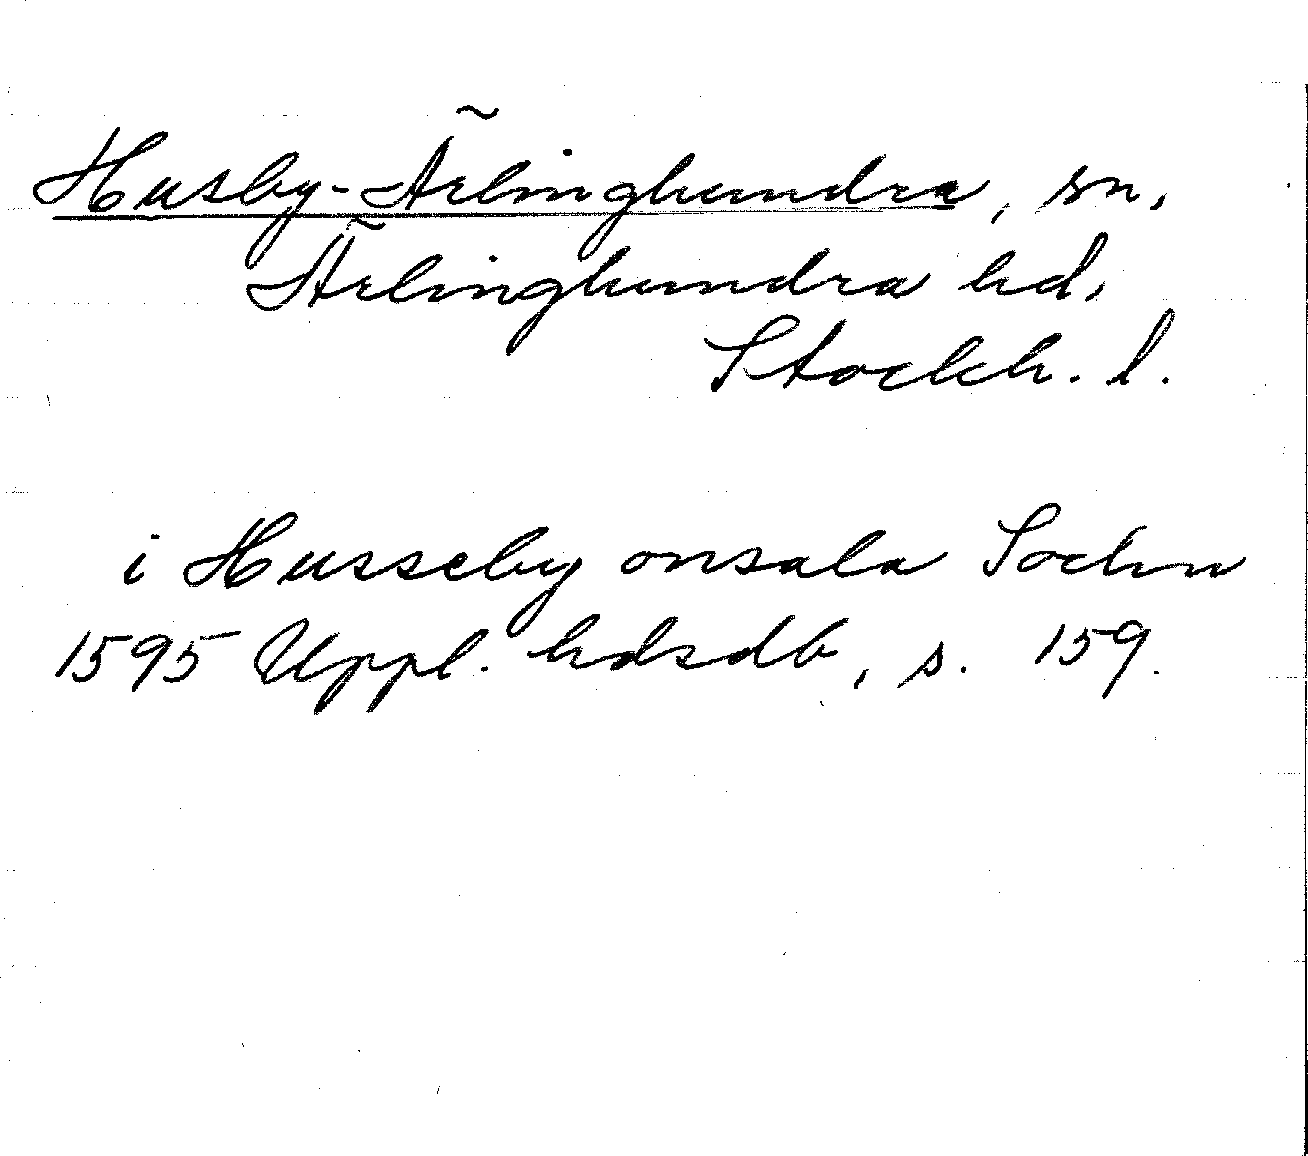 Husby-Ärlinghundra, sn,
Ärlinghundra hd,
Stockh. l.
i Husseby onsala Sochn
1595 Uppl. hdsdb, s. 159.